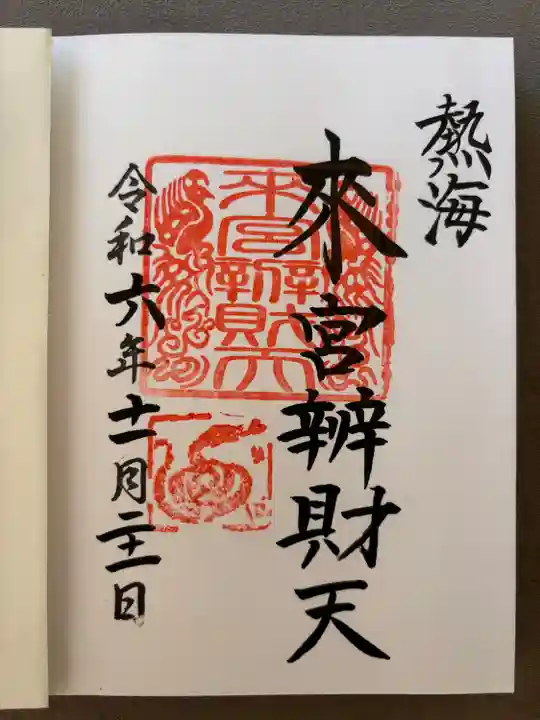 熱海
來宮辨財天
來宮辨財天
令和六年十一月二十一日